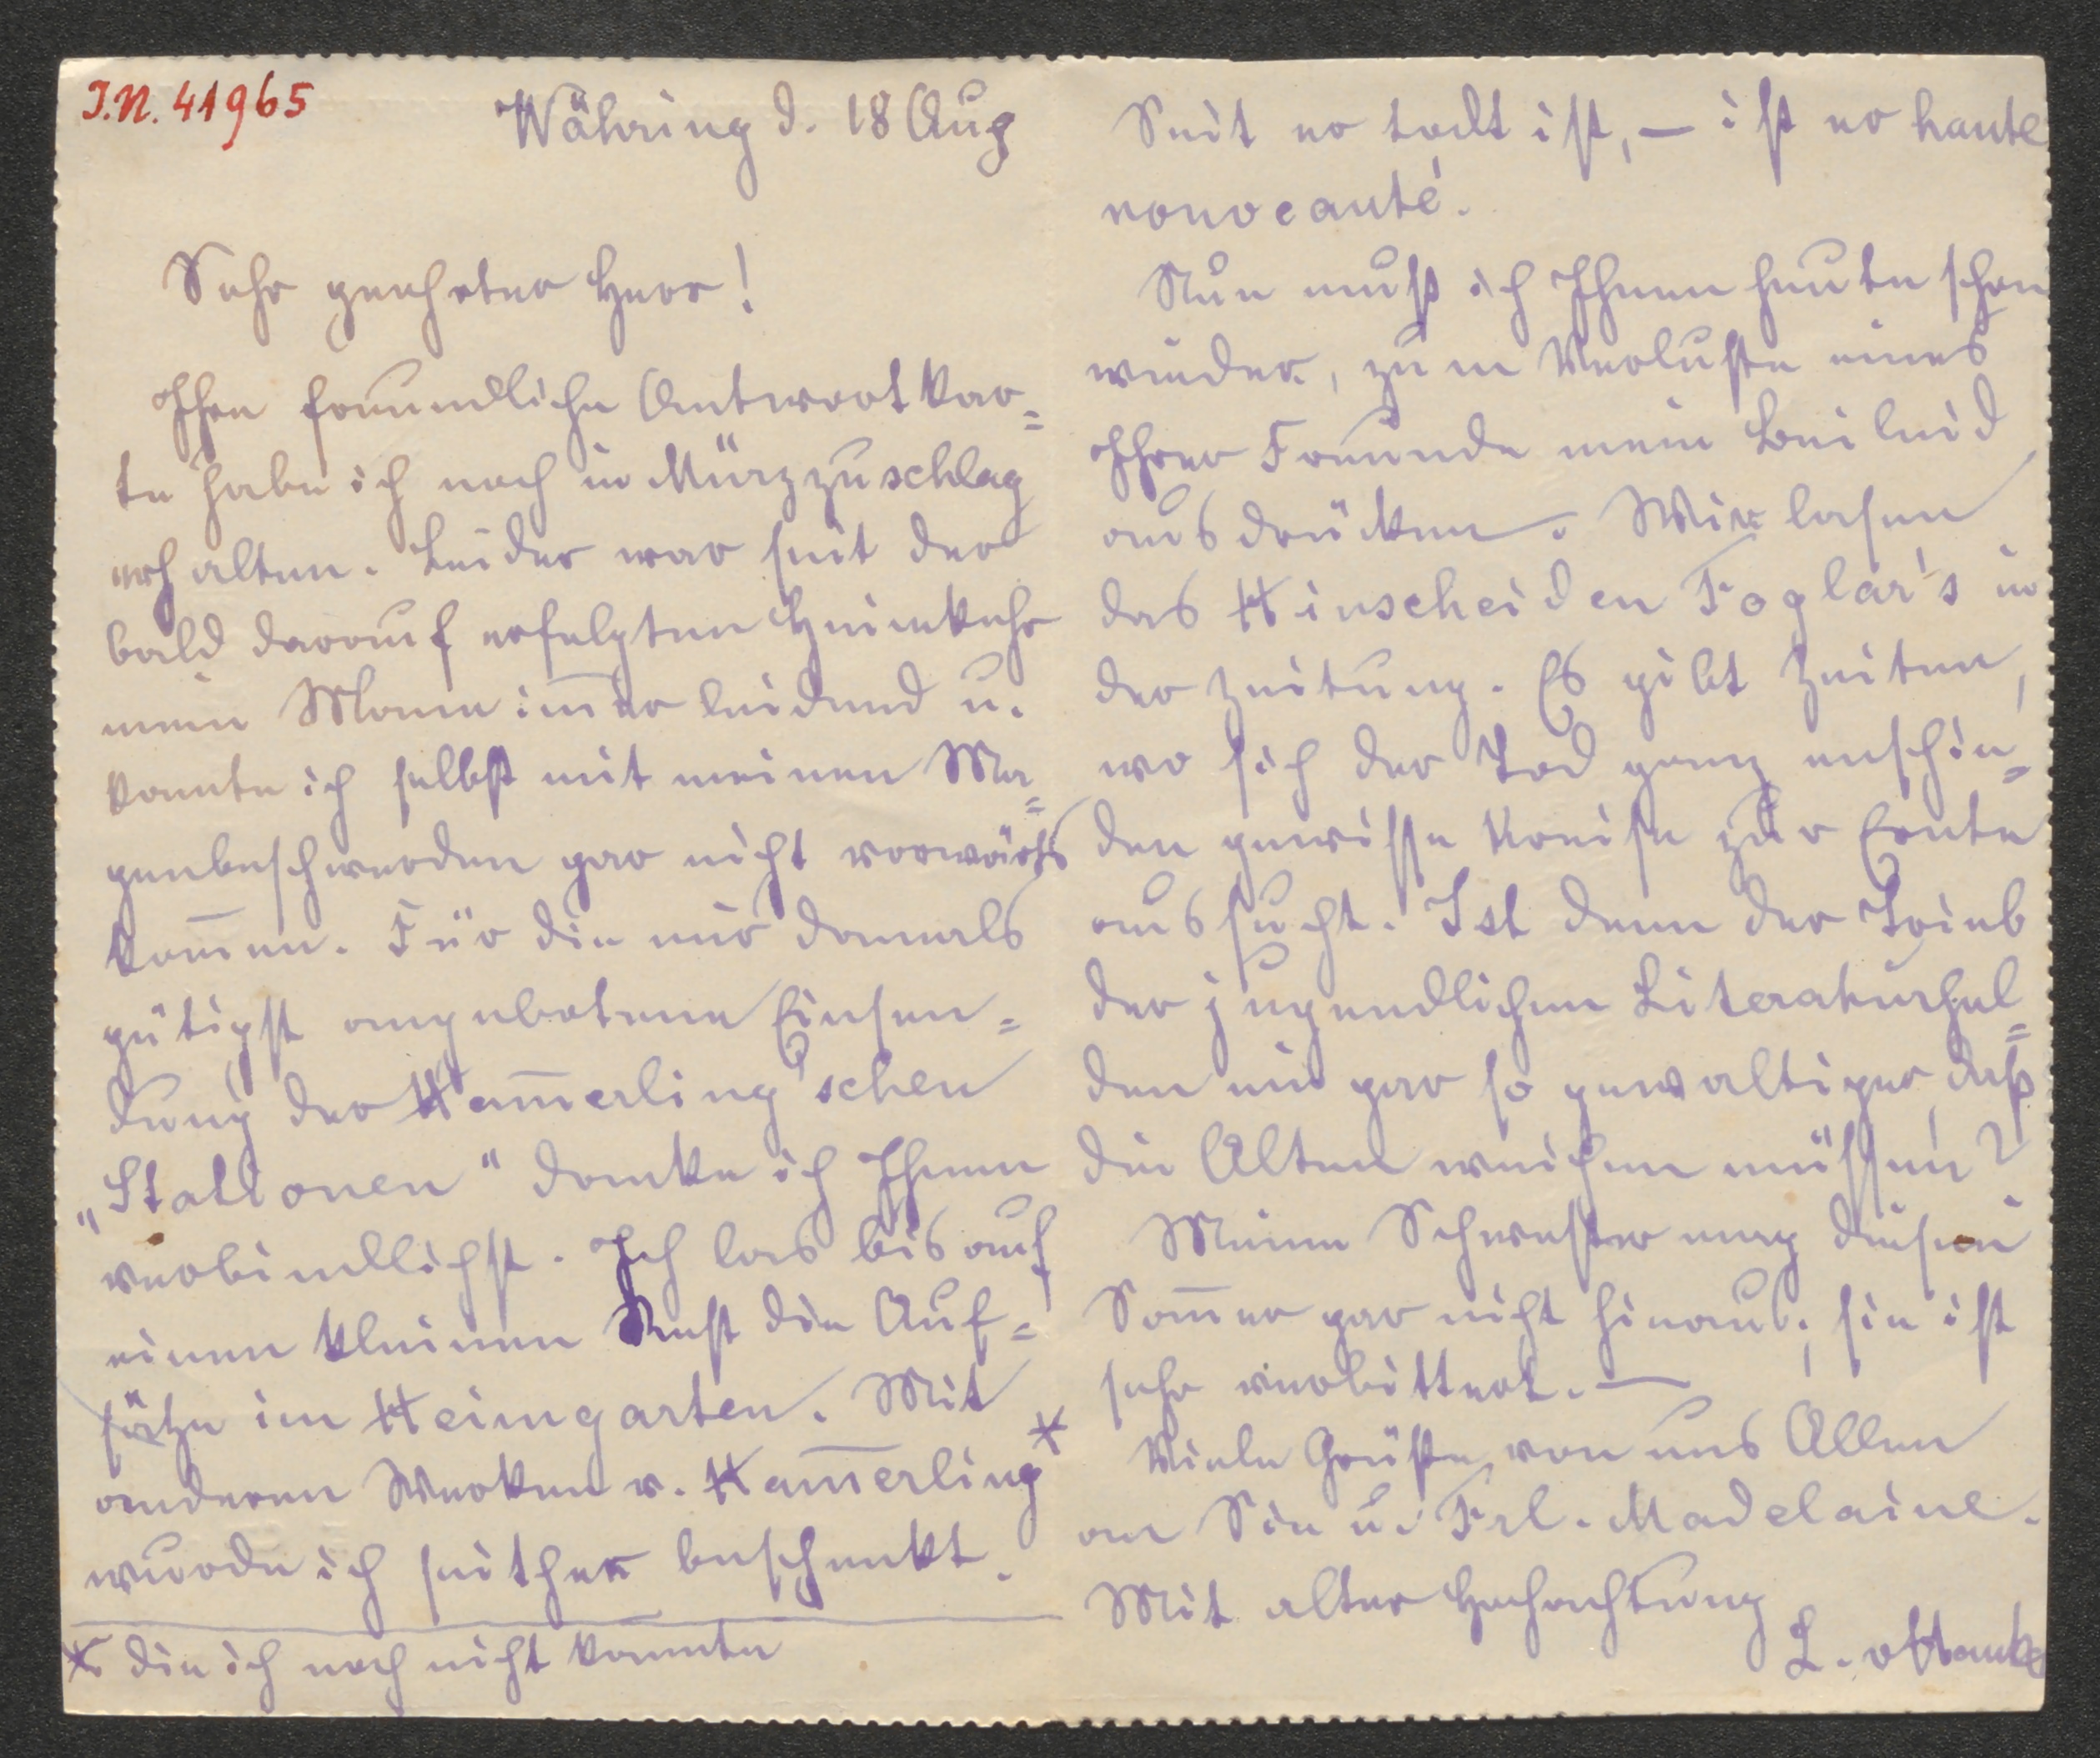 I.N. 41965
Währing d. 18 Aug
Sehr geehrter Herr!
Ihre freundliche Antwortkar=
te habe ich noch in Mürzzuschlag
erhalten. Leider war seit der
bald darauf erfolgten Heimkehr
mein Mann im̅er leidend u.
konnte ich selbst mit meinen Ma=
genbeschwerden gar nicht vorwärts
kom̅en. Für die mir damals
gütigst angebotene Einsen=
dung der Ham̅erling'schen
„Stationen" danke ich Ihnen
verbindlichst. Ich las bis auf
einen kleinen Rest die Auf=
sätze im Heimgarten. Mit
anderen Werken v. Ham̅erling*
wurde ich seither beschenkt.
* die ich noch nicht kannte
Seit er todt ist, — ist er haute
nouveauté.
Nun muß ich Ihnen heute schon
wieder, zum Verluste eines
Ihrer Freunde mein Beileid
ausdrücken. Wir lasen
das Hinscheiden Foglár's in
der Zeitung. Es gibt Zeiten,
wo sich der Tod ganz
den gewisse Kreise zur Ernte
aussucht. Ist denn der Trieb
der jugendlichen Literaturhel=
den ein gar so gewaltiger, daß
die Alten weichen müssen?
Meine Schwester mag diesen
Som̅er gar nicht hinaus; sie ist
sehr verbittert. —
Viele Grüße von uns Allen
an Sie u. Frl. Madelaine.
Mit alter Hochachtung
L. v